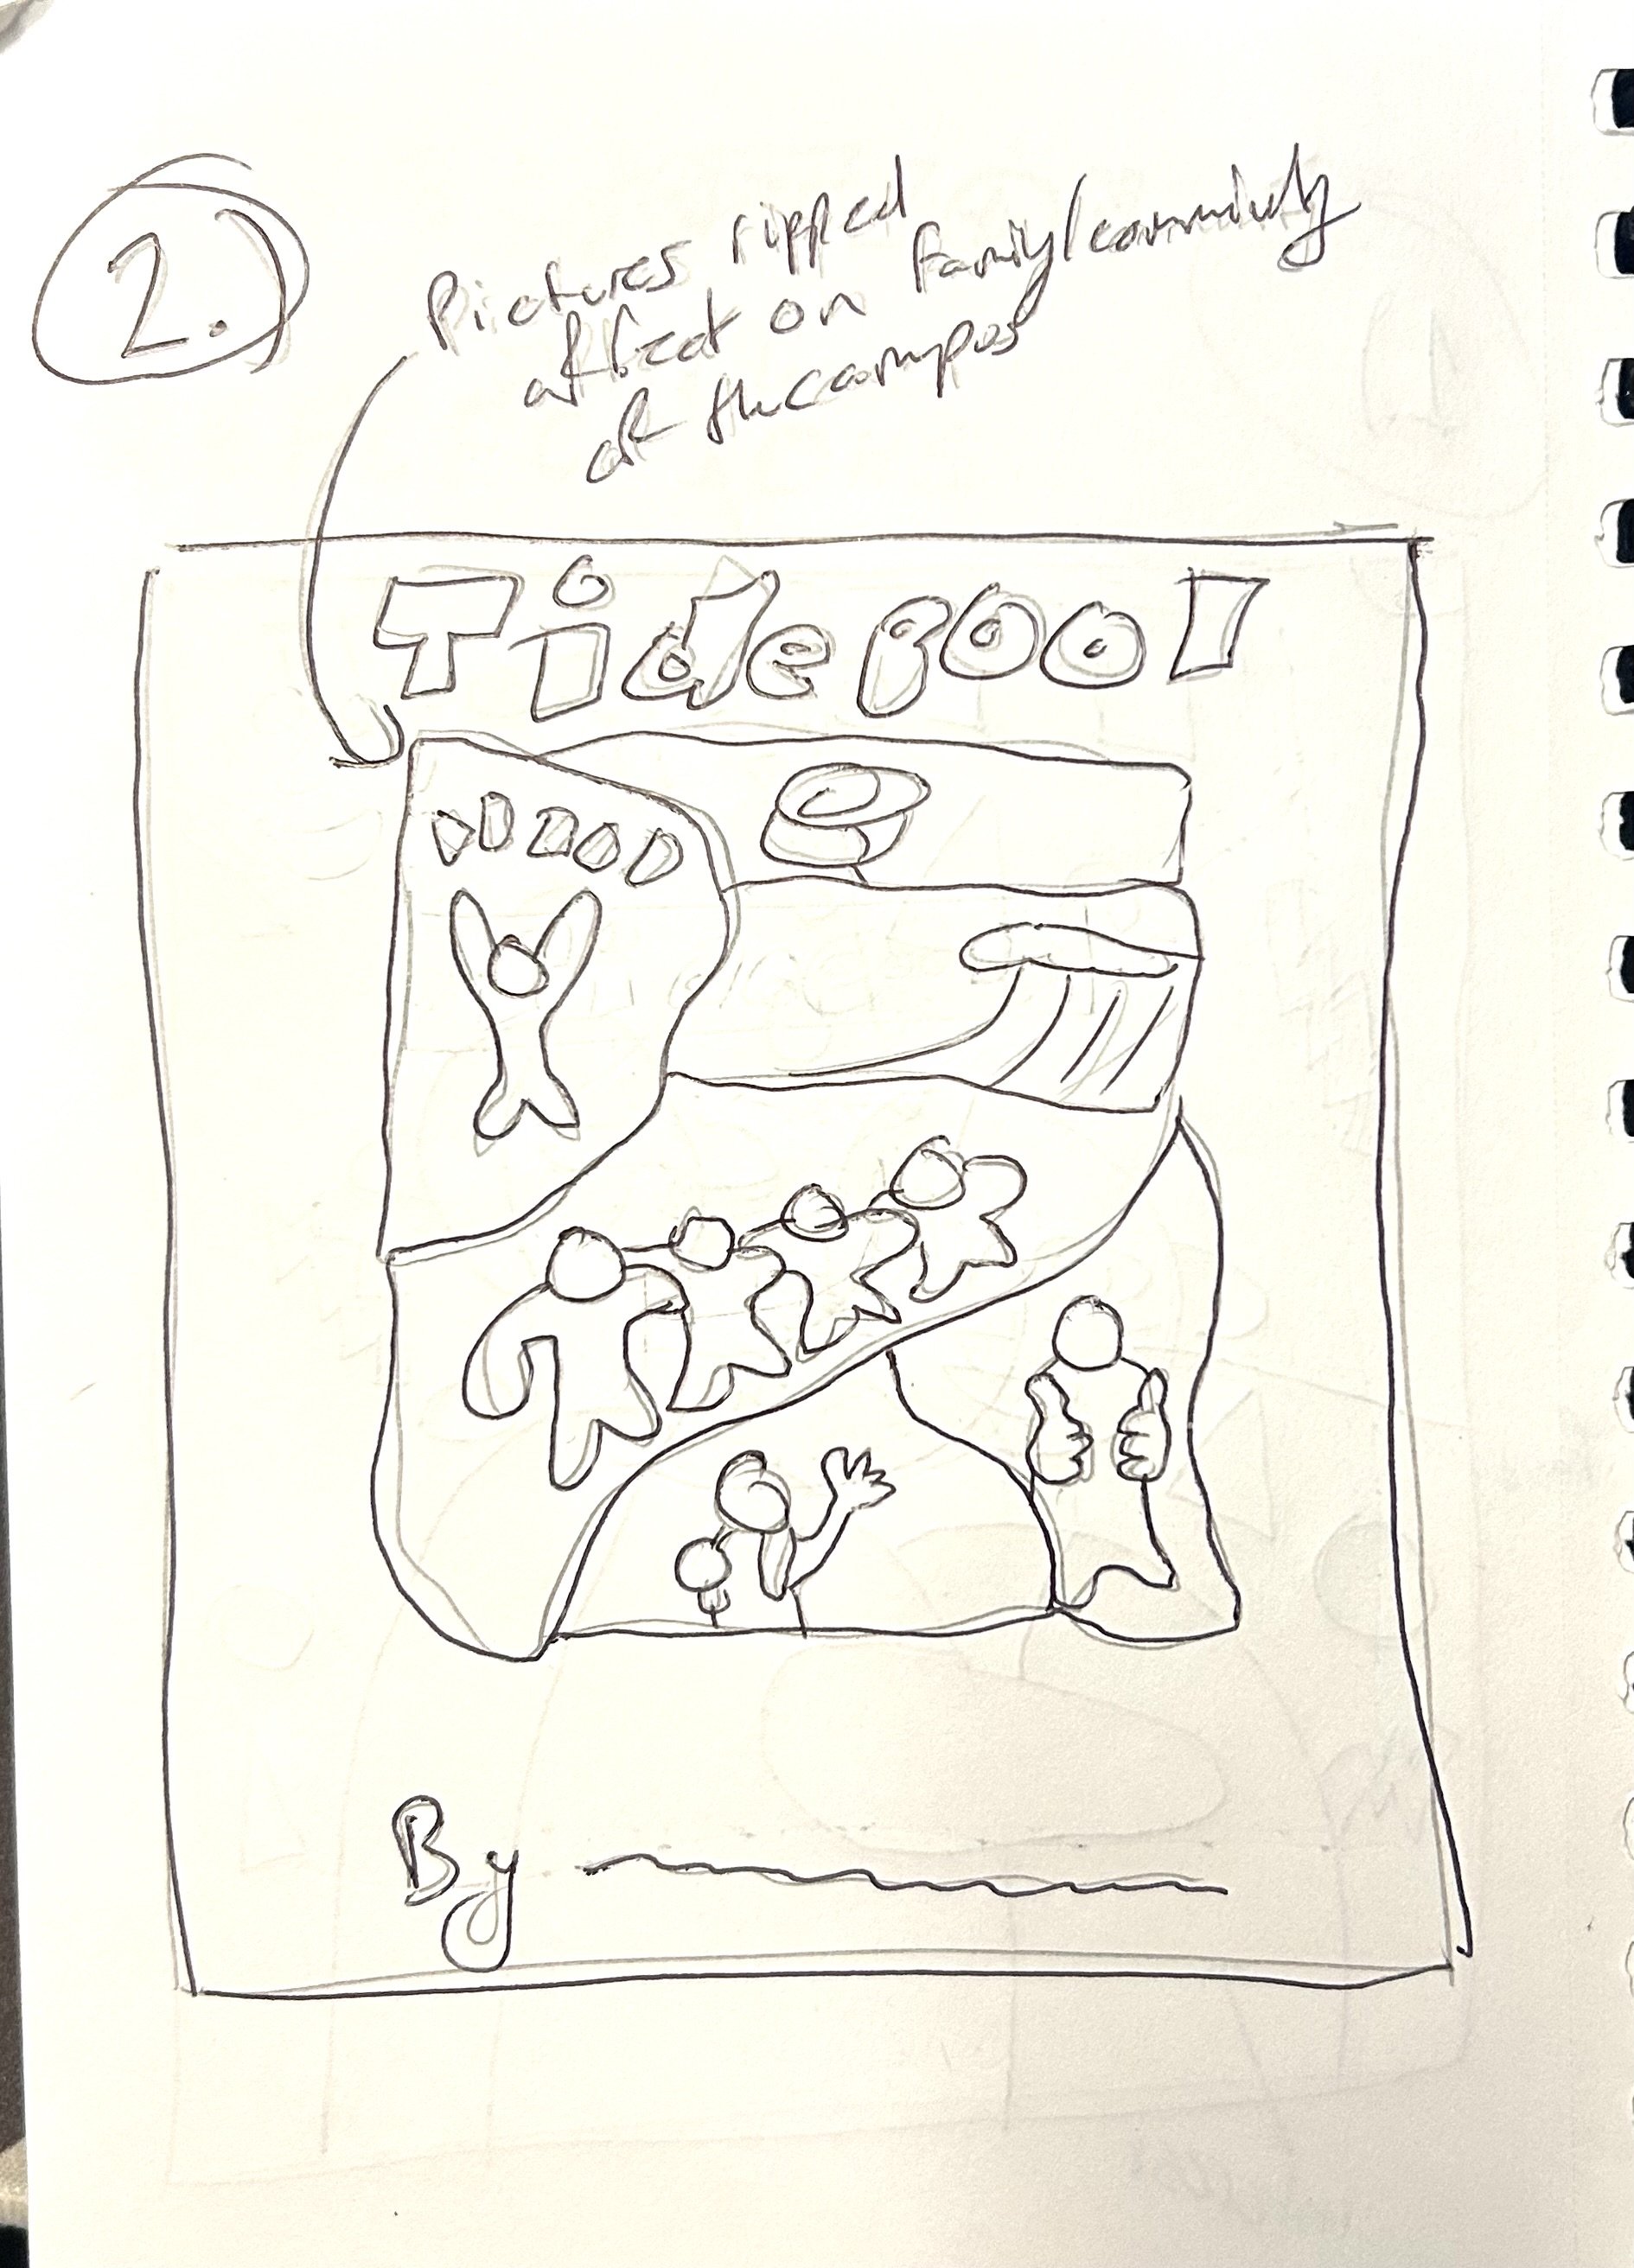 2.
Pictures ripped
affect on family/community
at the campus
Tidepool
By